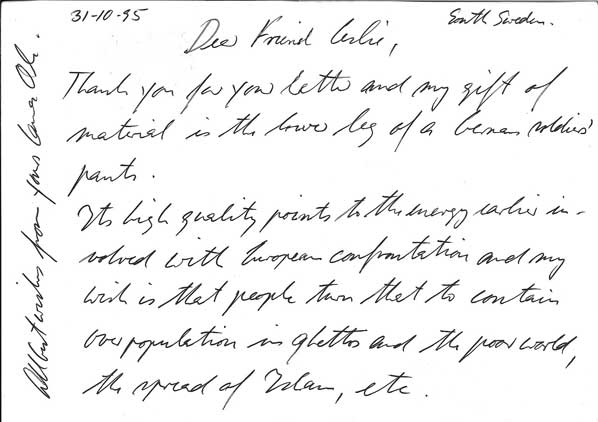 31-10-95
South Sweden.
Dear Friend Leslie,
Thank you for your letter and my gift of
material is the lower leg of a German soldiers'
pants.
Its high quality points to the energy earlier in-
volved with European confrontation and my
wish is that people turn that to contain
overpopulation in ghettos and the poor world,
the spread of Islam, etc.
All best wishes from yours